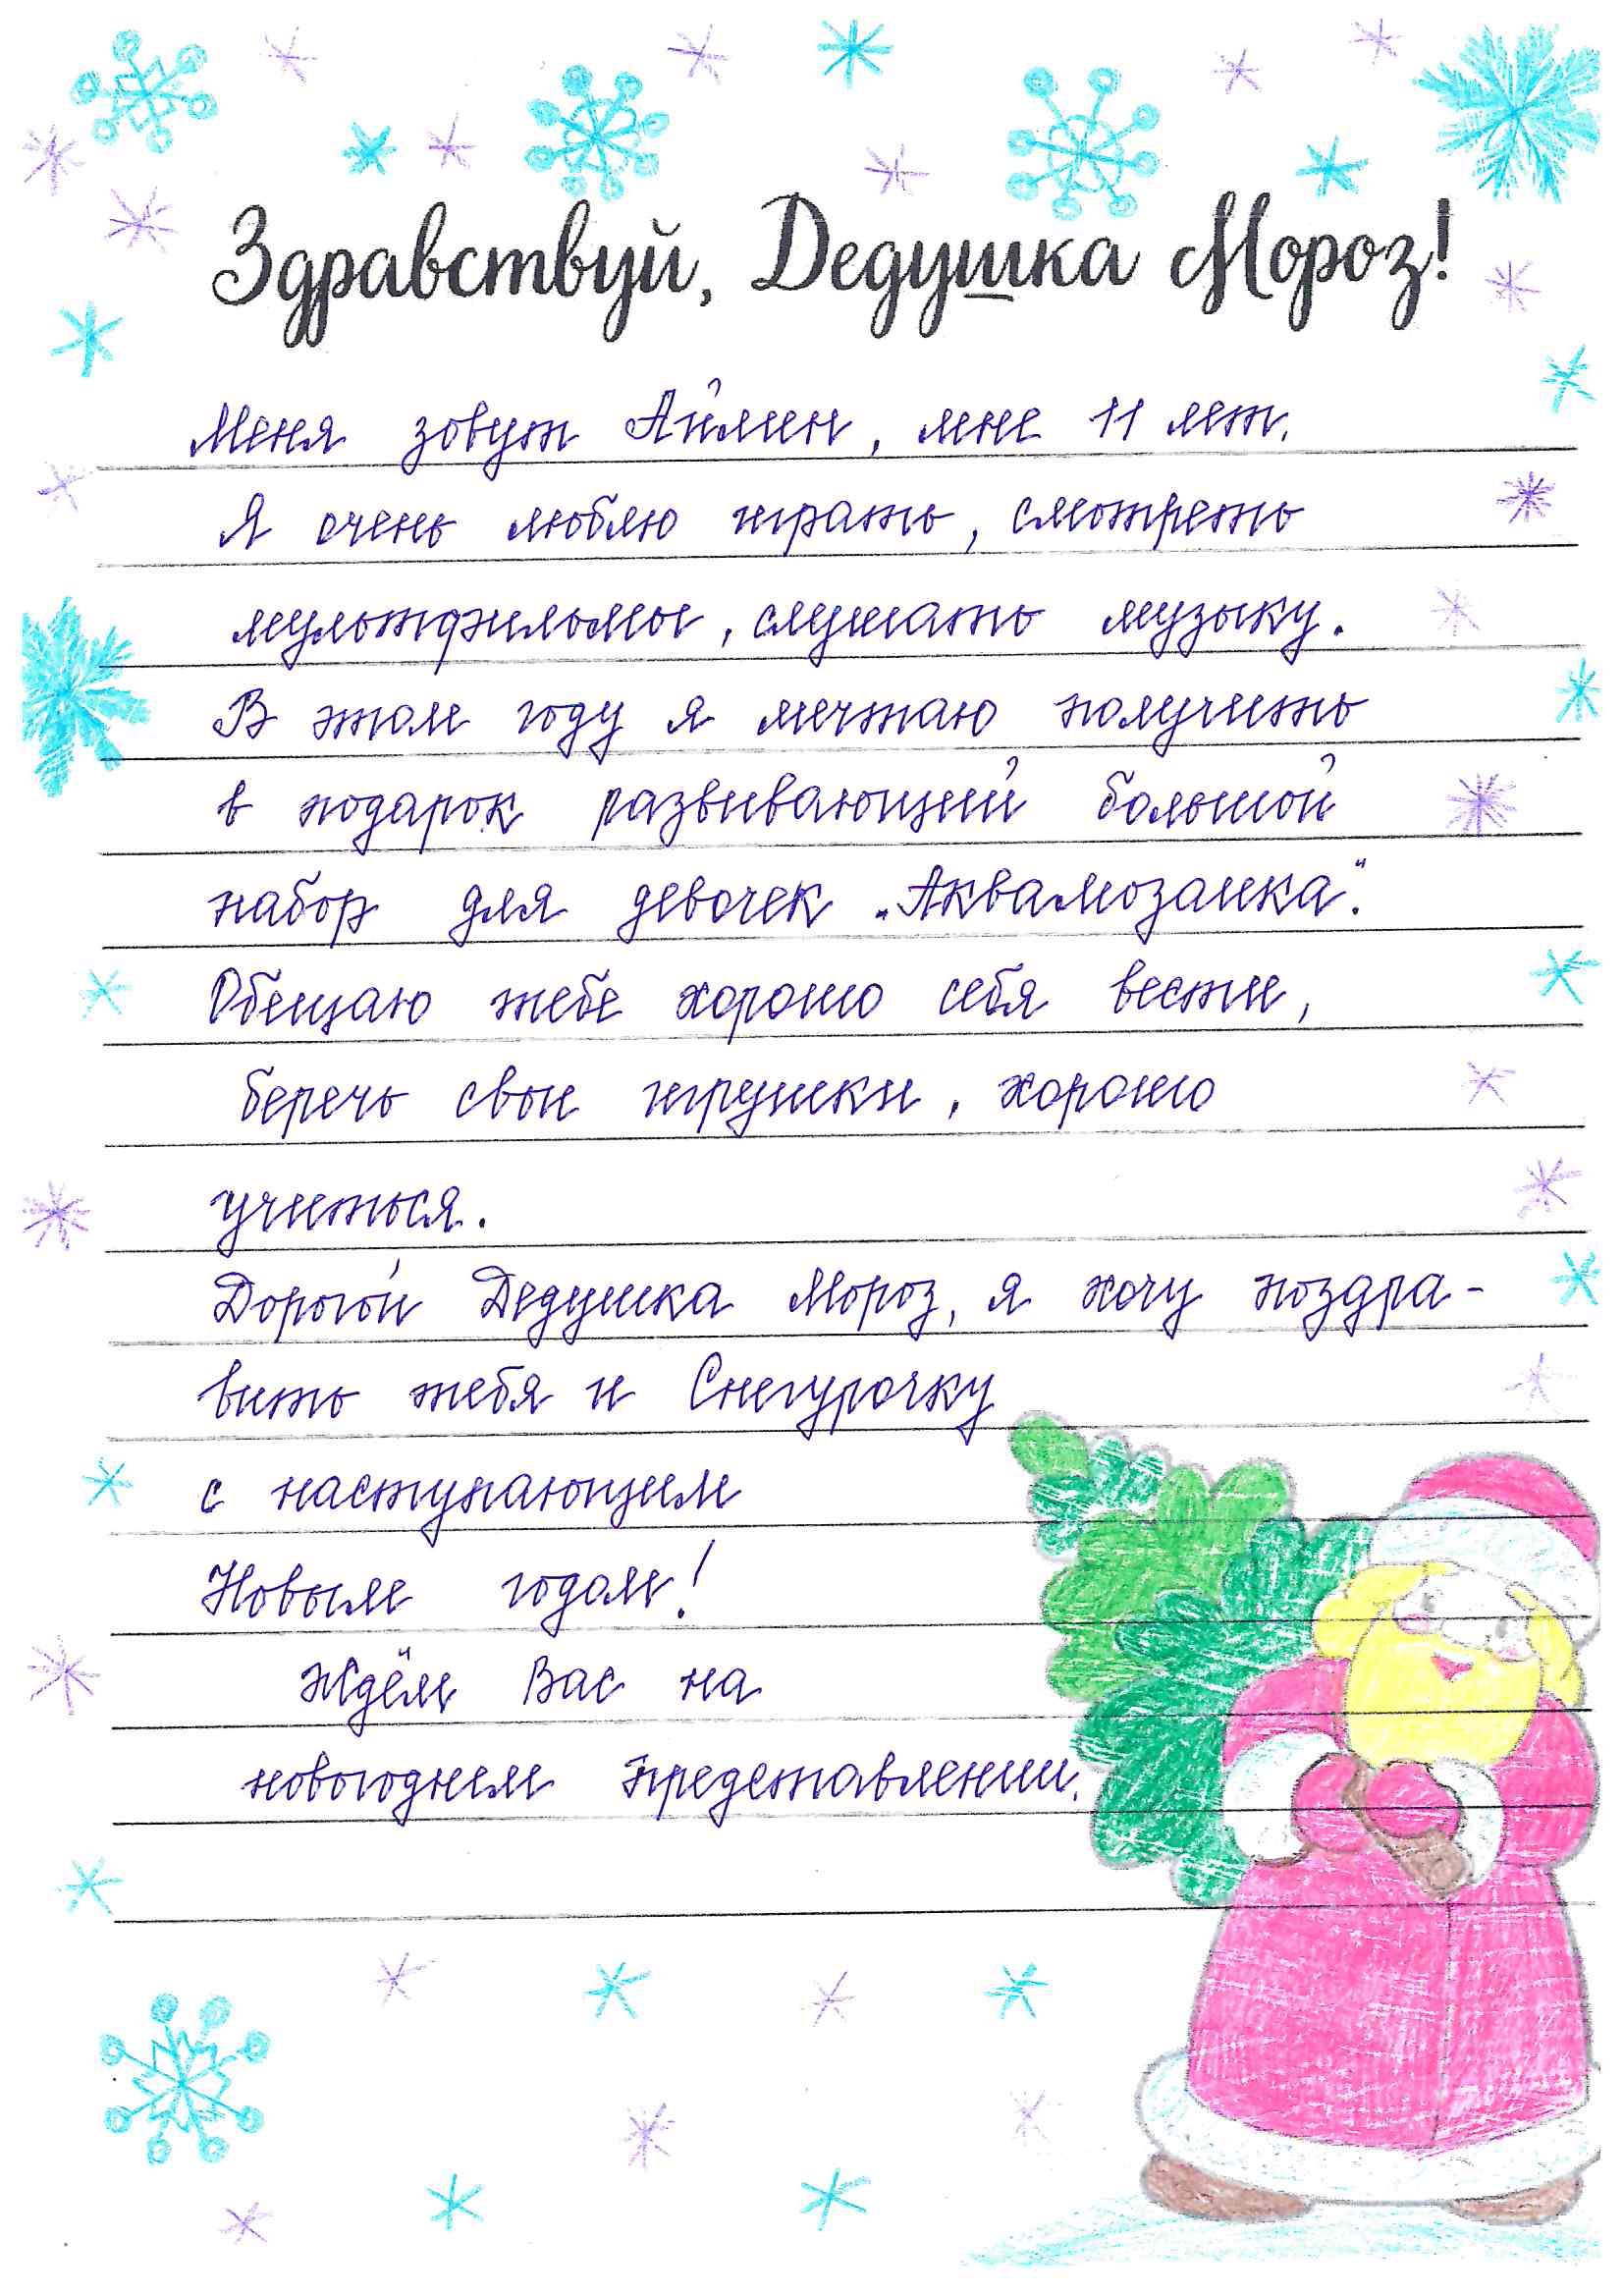 Здравствуй, Дедушка Мороз!
Меня зовут Айлин, мне 11 лет.
Я очень люблю играть, смотреть
мультфильмы, слушать музыку.
В этом году я мечтаю получить
в подарок развивающий большой
набор для девочек „Аквамозаика".
Обещаю тебе хорошо себя вести,
беречь свои игрушки, хорошо
учиться.
Дорогой Дедушка Мороз, я хочу поздра-
вить тебя и Снегурочку
с наступающим
Новым годом!
Ждём Вас на
новогоднем представлении.